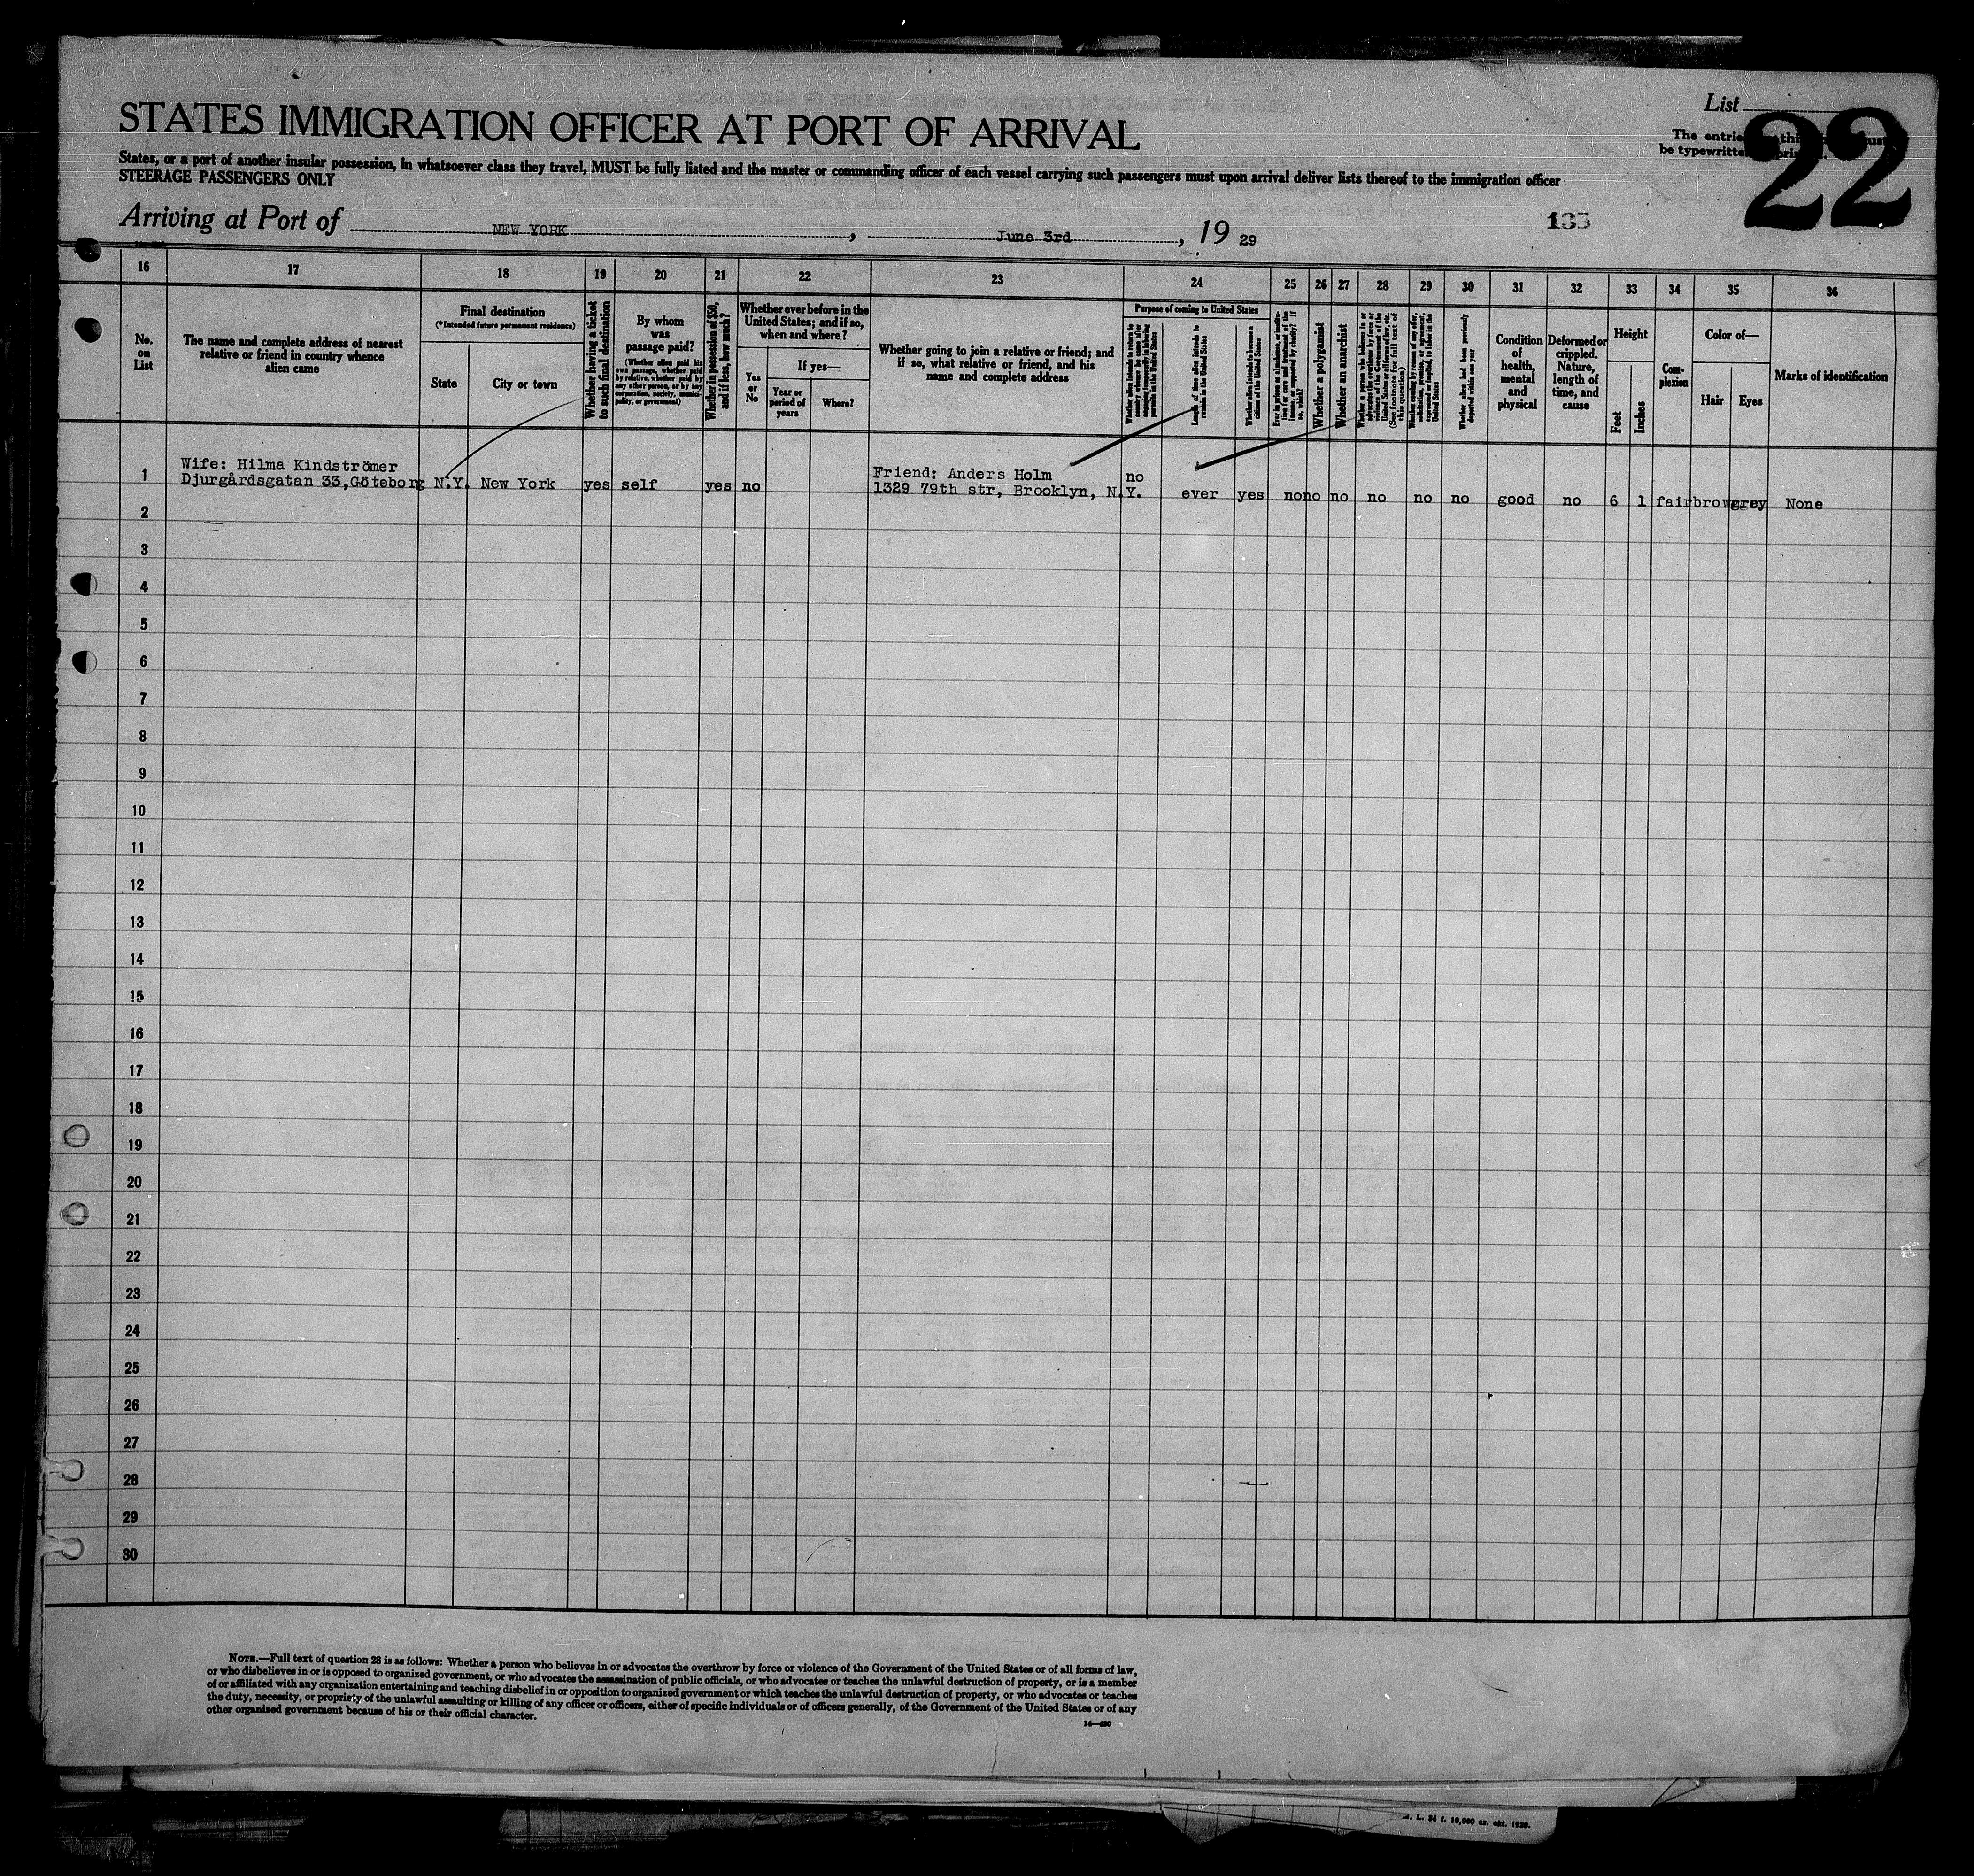 STATES IMMIGRATION OFFICER AT PORT OF ARRIVAL
List
22
The entries this must
be typewritten
States, or a port of another insular possession, in whatsoever class they travel, MUST be fully listed and the master or commanding officer of each vessel carrying such passengers must upon arrival deliver lists thereof to the immigration officer
STEERAGE PASSENGERS ONLY
Arriving at Port of NEW YORK, June 3rd, 1929
133
16 17 18 19 20 21 22 23 24 25 26 27 28 29 30 31 32 33 34 35 36
No.
on
List
The name and complete address of nearest
relative or friend in country whence
alien came
Final destination
(*Intended future permanent residence)
State
City or town
Whether having a ticket
to such final destination
By whom
was
passage paid?
(Whether alien paid his
own passage, whether paid
by relative, whether paid by
any other person, or by any
corporation, society, munici-
pality, or government)
Whether in possession of $50,
and if less, how much?
Whether ever before in the
United States; and if so,
when and where?
Yes
or
No
If yes—
Year or
period of
years
Where?
Whether going to join a relative or friend; and
if so, what relative or friend, and his
name and complete address
Purpose of coming to United States
Whether alien intends to return to
country whence he came after
engaging temporarily in laboring
pursuits in the United States
Length of time alien intends to
remain in the United States
Whether alien intends to become a
citizen of the United States
Ever in prison or almshouse, or institu-
tion for care and treatment of the
insane, or supported by charity? If
so, which?
Whether a polygamist
Whether an anarchist
Whether a person who believes in or
advocates the overthrow by force or
violence of the Government of the
United States or all forms of law, etc.
(See footnote for full text of
this question)
Whether coming by reason of any offer,
solicitation, promise, or agreement,
expressed or implied, to labor in the
United States
Whether alien had been previously
deported within one year
Condition
of
health,
mental
and
physical
Deformed or
crippled.
Nature,
length of
time, and
cause
Height
Feet
Inches
Com-
plexion
Color of—
Hair
Eyes
Marks of identification
1 Wife: Hilma Kindströmer
Djurgårdsgatan 33,Göteborg N.Y. New York yes self yes no Friend: Anders Holm
1329 79th str, Brooklyn, N.Y. no ever yes no no no no no no good no 6 1 fair brown grey None
2
3
4
5
6
7
8
9
10
11
12
13
14
15
16
17
18
19
20
21
22
23
24
25
26
27
28
29
30
NOTE.—Full text of question 28 is as follows: Whether a person who believes in or advocates the overthrow by force or violence of the Government of the United States or of all forms of law,
or who disbelieves in or is opposed to organized government, or who advocates the assassination of public officials, or who advocates or teaches the unlawful destruction of property, or is a member
of or affiliated with any organization entertaining and teaching disbelief in or opposition to organized government or which teaches the unlawful destruction of property, or who advocates or teaches
the duty, necessity, or propriety of the unlawful assaulting or killing of any officer or officers, either of specific individuals or of officers generally, of the Government of the United States or of any
other organized government because of his or their official character.
14—430
L. 34 f. 10,000 ex. okt. 1928.